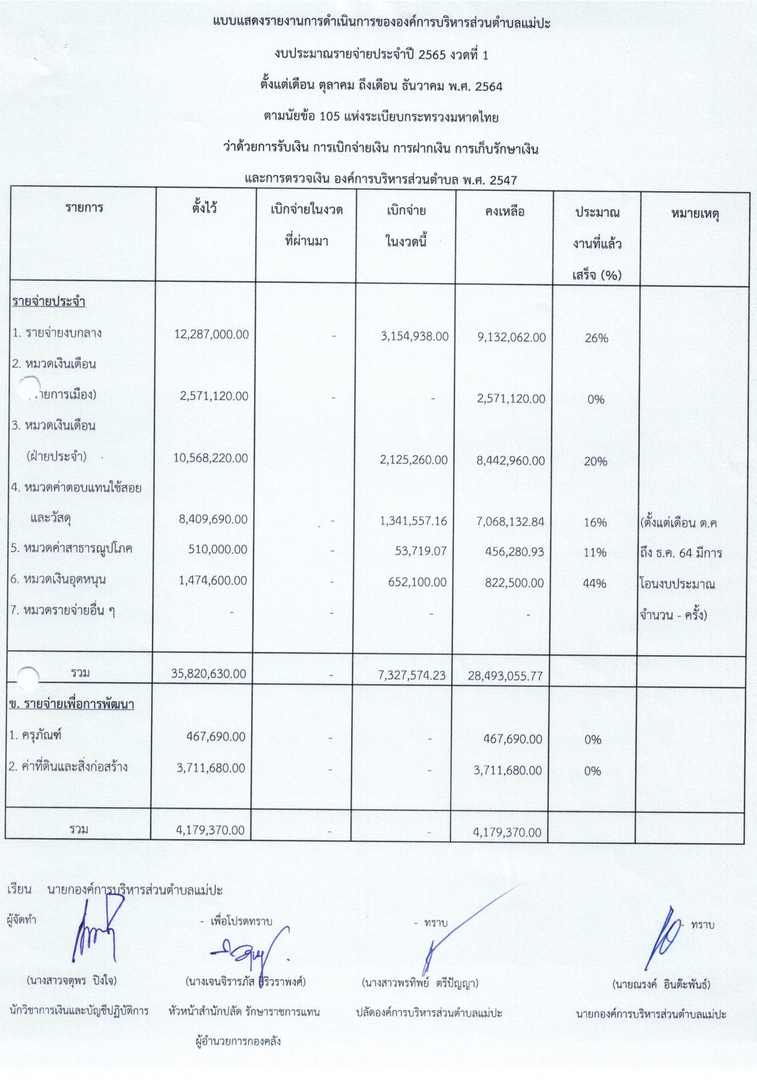 แบบแสดงรายงานการดำเนินการขององค์การบริหารส่วนตำบลแม่ปะ
งบประมาณรายจ่ายประจำปี 2565 งวดที่ 1
ตั้งแต่เดือน ตุลาคม ถึงเดือน ธันวาคม พ.ศ. 2564
ตามนัยข้อ 105 แห่งระเบียบกระทรวงมหาดไทย
ว่าด้วยการรับเงิน การเบิกจ่ายเงิน การฝากเงิน การเก็บรักษาเงิน
และการตรวจเงิน องค์การบริหารส่วนตำบล พ.ศ. 2547
รายการ ตั้งไว้ เบิกจ่ายในงวด เบิกจ่าย คงเหลือ ประมาณ หมายเหตุ
ที่ผ่านมา ในงวดนี้ งานที่แล้ว
เสร็จ (%)
รายจ่ายประจำ
1. รายจ่ายงบกลาง 12,287,000.00 - 3,154,938.00 9,132,062.00 26%
2. หมวดเงินเดือน
ายการเมือง) 2,571,120.00 - - 2,571,120.00 0%
3. หมวดเงินเดือน
(ฝ่ายประจำ) 10,568,220.00 2,125,260.00 8,442,960.00 20%
4. หมวดค่าตอบแทนใช้สอย
และวัสดุ 8,409,690.00 - 1,341,557.16 7,068,132.84 16% (ตั้งแต่เดือน ต.ค
5. หมวดค่าสาธารณูปโภค 510,000.00 - 53,719.07 456,280.93 11% ถึง ธ.ค. 64 มีการ
6. หมวดเงินอุดหนุน 1,474,600.00 - 652,100.00 822,500.00 44% โอนงบประมาณ
7. หมวดรายจ่ายอื่น ๆ - - - - จำนวน - ครั้ง)
รวม 35,820,630.00 - 7,327,574.23 28,493,055.77
ข. รายจ่ายเพื่อการพัฒนา
1. ครุภัณฑ์ 467,690.00 - - 467,690.00 0%
2. ค่าที่ดินและสิ่งก่อสร้าง 3,711,680.00 - - 3,711,680.00 0%
รวม 4,179,370.00 - - 4,179,370.00
เรียน นายกองค์การบริหารส่วนตำบลแม่ปะ
ผู้จัดทำ - เพื่อโปรดทราบ - ทราบ - ทราบ
(นางสาวจตุพร ปิงใจ) (นางเจนจิรารภัส ริวราพงศ์) (นางสาวพรทิพย์ ตรีปัญญา) (นายณรงค์ อินต๊ะพันธ์)
นักวิชาการเงินและบัญชีปฏิบัติการ หัวหน้าสำนักปลัด รักษาราชการแทน ปลัดองค์การบริหารส่วนตำบลแม่ปะ นายกองค์การบริหารส่วนตำบลแม่ปะ
ผู้อำนวยการกองคลัง